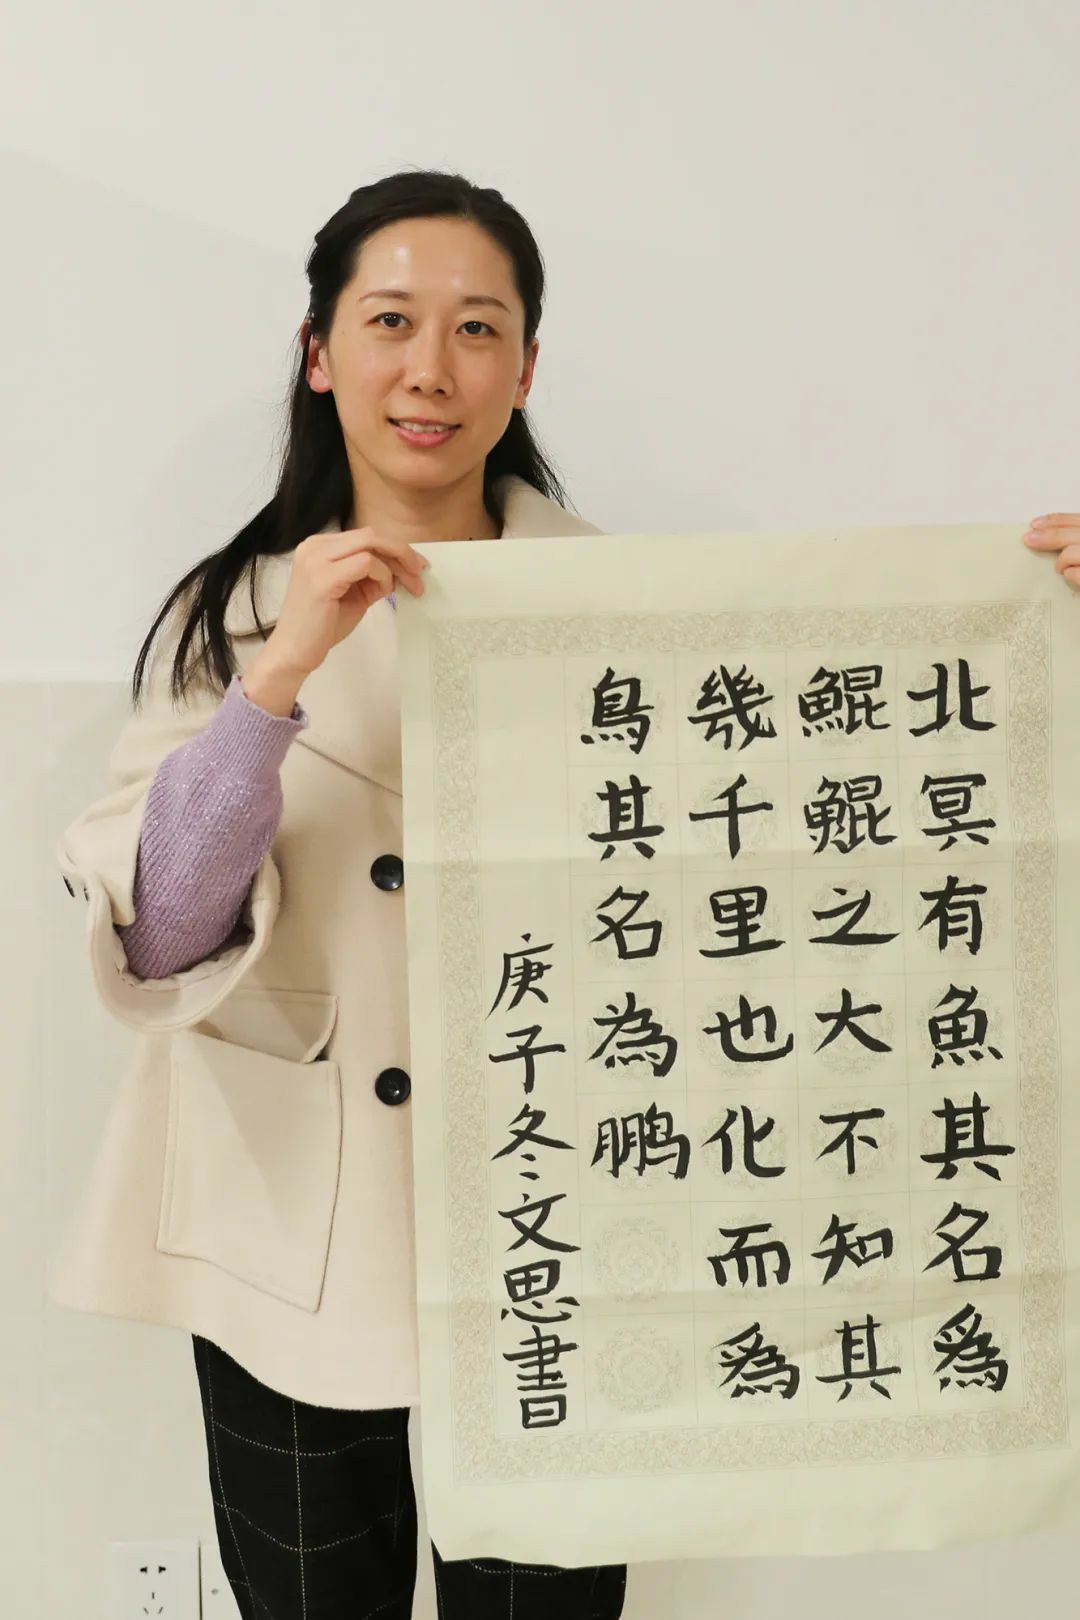 北冥有魚其名爲
鯤鯤之大不知其
幾千里也化而爲
鳥其名為鵬
庚子冬文思書